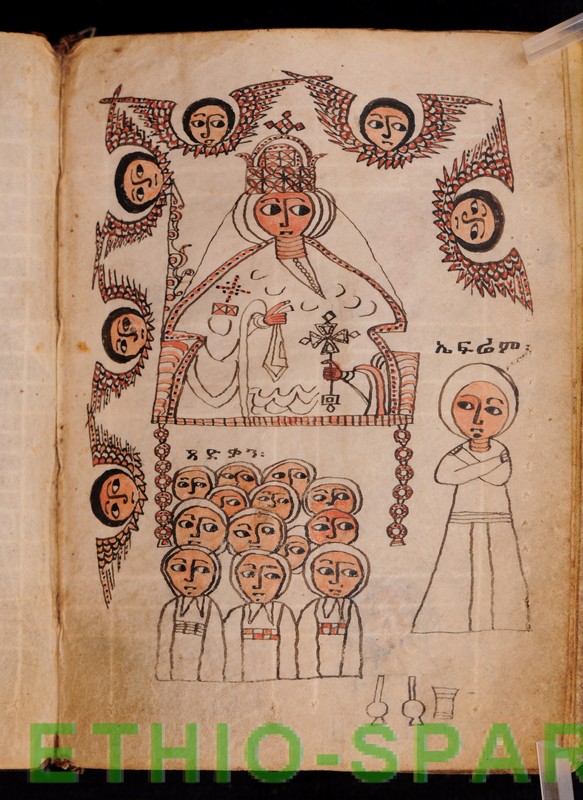 ኤፍሬም፡
ጻድቃን፡
ETHIO-SPAR